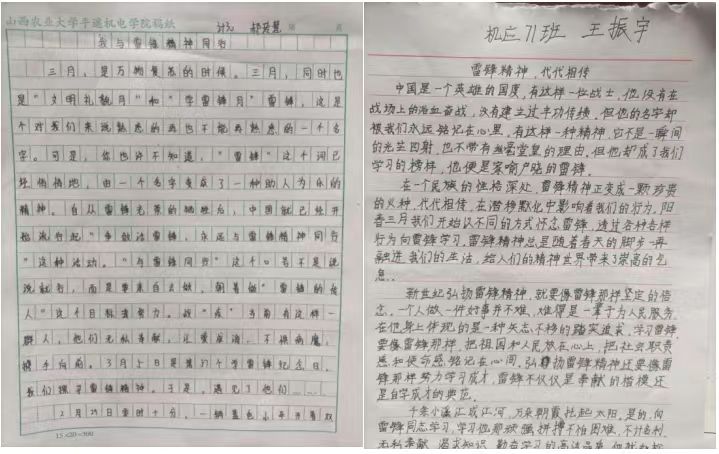 山西农业大学平遥机电学院稿纸
计元
我与雷锋精神同行
三月，是万物复苏的时候。三月，同时也
是"文明礼貌月"和"学雷锋月"雷锋，这是
个对我们来说熟悉的再也不能再熟悉的一个名
字。可是，你也许不知道，"雷锋"这个词已
经悄悄地，由一个名字变成了一种助人为乐的
精神。自从雷锋光荣的牺牲后，中国就已经开
"这种活动。"与雷锋同行"这个口号不是说
说就行，而是要亲自去做。朝着做"雷锋的传
人"这个目标去努力。战"疫"当前有这样一
群人，他们无私奉献，让爱启涌，不惧病魔，
携手向前。3月5日是第57个学雷锋纪念日，
我们探寻雷锋精神。于是，遇见了他们……
2月29日零时十分，一辆蓝色小平开着双
15×20=300
机应71班 王振宇
雷锋精神，代代相传
中国是一个英雄的国度，有这样一位战士，他没有在
战场上的浴血奋战，没有建立过丰功伟绩，但他的名字却
被我们永远铭记在心里。有这样一种精神，它不是一瞬间
的光芒四射，也不带有丝毫堂皇的理由，但他却成了我们
学习的榜样，他便是家喻户晓的雷锋。
在一个民族的性格深处，雷锋精神正变成一颗珍贵
的火种，代代相传，在潜移默化中影响着我们的行为，阳
春三月我们开始以不同的方式怀念雷锋，透过各种各样
行为向雷锋学习。雷锋精神总是随着春天的脚步再
融进我们的生活，给人们的精神世界带来了崇高的气
息。
新世纪弘扬雷锋精神，就要像雷锋那样坚定的信
念。一个人做一件好事并不难，难得是一辈子为人民服务，
在他身上体现的是一种矢志不移的踏实追求，学习雷锋
要像雷锋那样，把祖国和人民放在心上，把社会职责
感和使命感铭记在心间。弘扬雷锋精神还要像雷
锋那样努力学习成才，雷锋不仅仅是奉献的楷模还
是自学成才的典范。
千条小溪汇成江河，万朵朝霞托起太阳。是的，向
雷锋同志学习，学习他那顽强拼搏不怕困难，不计名利